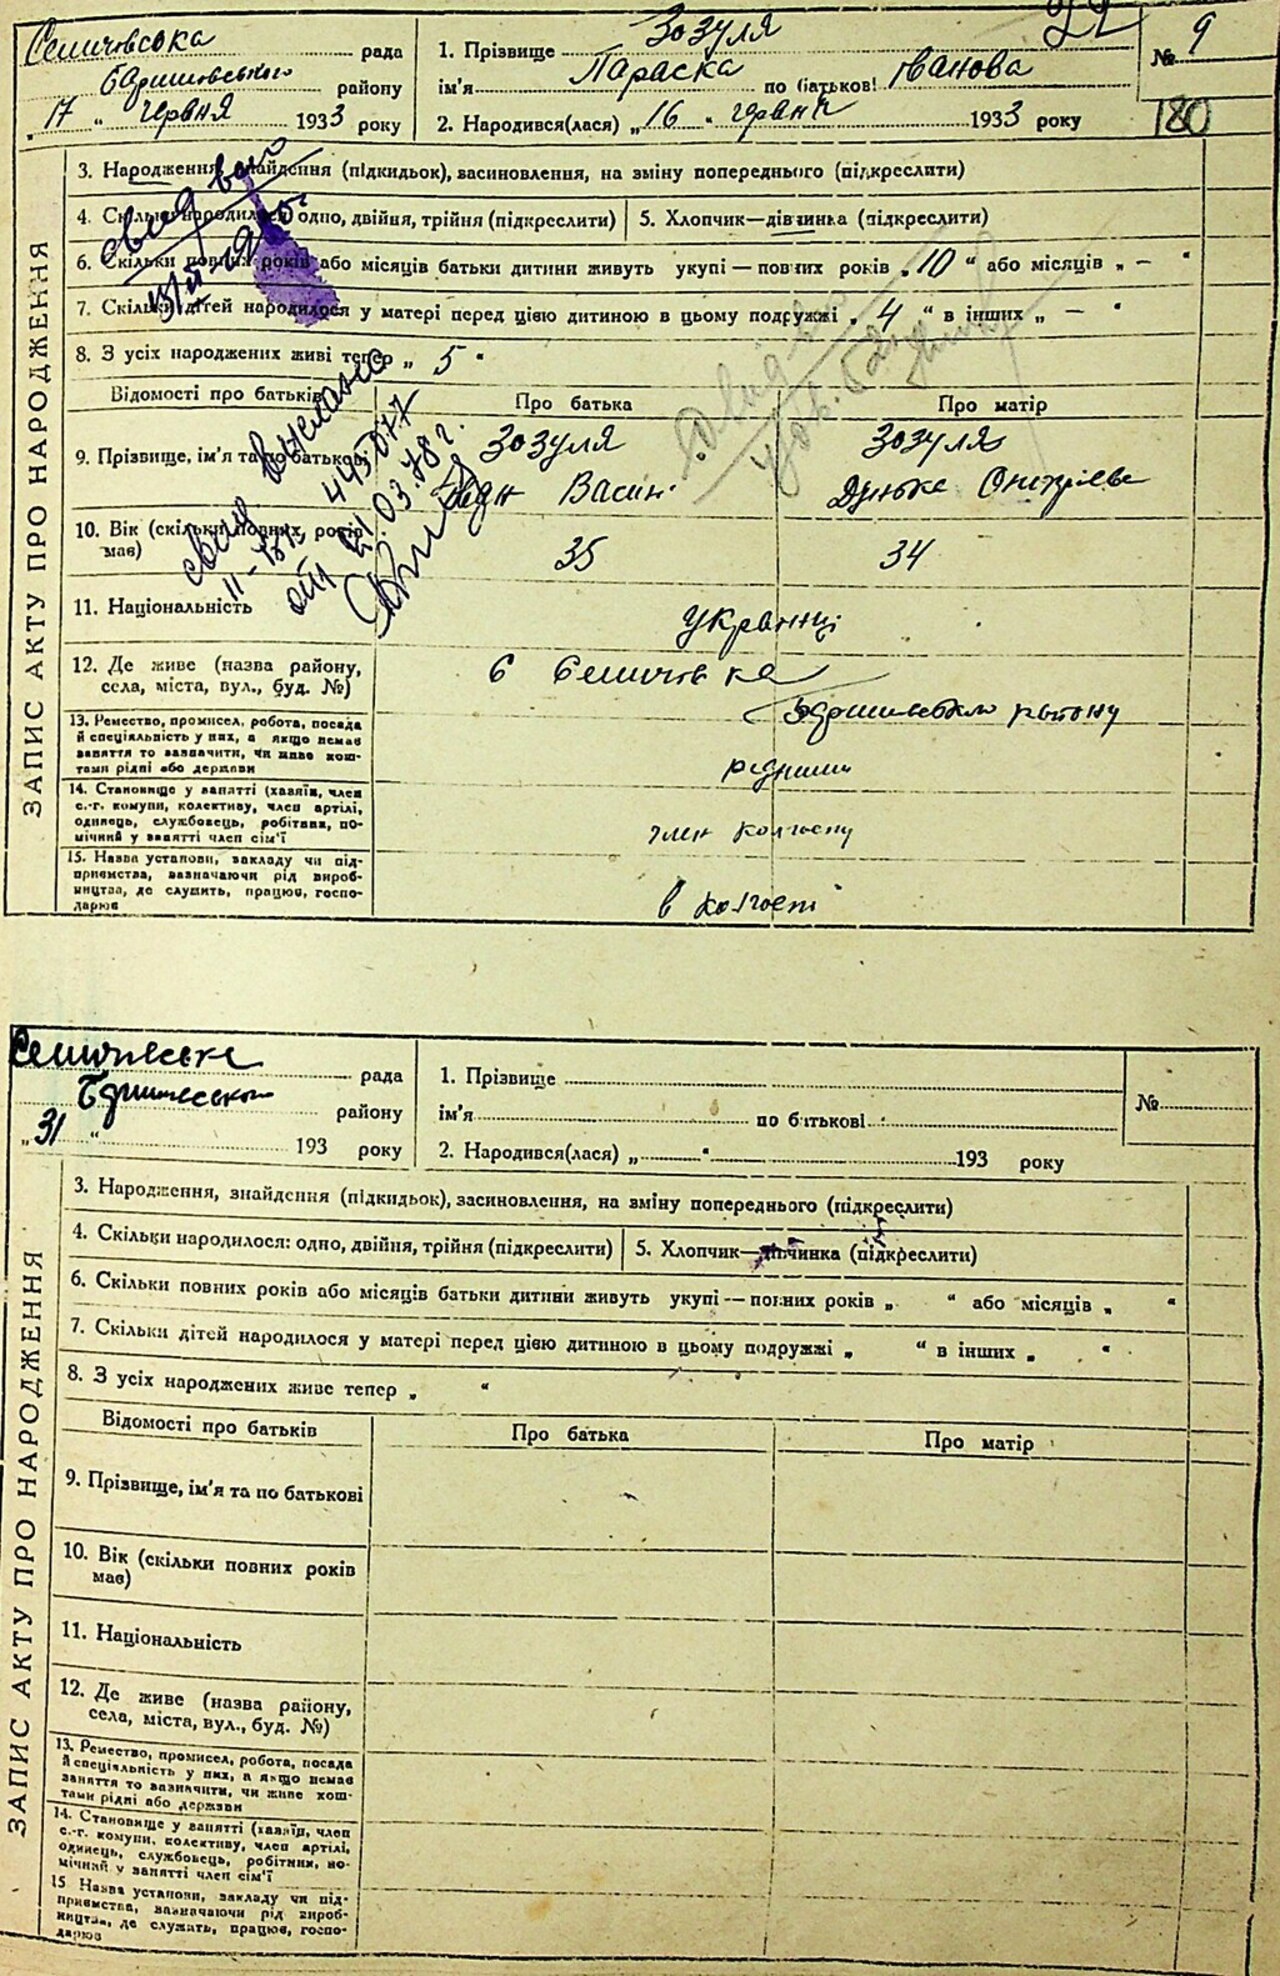 Селичовська рада
Баришовського району
„17“ червня 1933 року
1. Прізвище Зозуля
ім'я Параска по батькові Іванова
2. Народився(лася) „16“ червня 1933 року
22
№ 9
180
ЗАПИС АКТУ ПРО НАРОДЖЕННЯ
3. Народження, знайдення (підкидьок), засиновлення, на зміну попереднього (підкреслити)
4. Скільки народилося: одно, двійня, трійня (підкреслити) 5. Хлопчик—дівчинка (підкреслити)
6. Скільки повних років або місяців батьки дитини живуть укупі — повних років „10“ або місяців „—“
7. Скільки дітей народилося у матері перед цією дитиною в цьому подружжі „4“ в інших „—“
8. З усіх народжених живі тепер „5“
Відомості про батьків Про батька Про матір
9. Прізвище, ім'я та по батькові Зозуля Зозуля
Васил.
10. Вік (скільки повних років має) 35 34
11. Національність Українці
12. Де живе (назва району, с Селичовка
села, міста, вул., буд. №) Баришевського району
13. Ремество, промисел, робота, посада
й спеціальність у них, а якщо немає
заняття то зазначити, чи живе кош-
тами рідні або держави
14. Становище у занятті (хазяїн, член
с.-г. комуни, колективу, член артілі,
одинець, службовець, робітник, по-
мічний у занятті член сім'ї член колгоспу
15. Назва установи, закладу чи під-
приємства, зазначаючи рід вироб-
ництва, де служить, працює, госпо-
дарює в колгоспі
свид выслано
II-
443077
21.03.78 г.
свид.
рада
району
„31“ 193 року
1. Прізвище
ім'я по батькові
2. Народився(лася) „ “ 193 року
№
ЗАПИС АКТУ ПРО НАРОДЖЕННЯ
3. Народження, знайдення (підкидьок), засиновлення, на зміну попереднього (підкреслити)
4. Скільки народилося: одно, двійня, трійня (підкреслити) 5. Хлопчик—дівчинка (підкреслити)
6. Скільки повних років або місяців батьки дитини живуть укупі — повних років „ “ або місяців „ “
7. Скільки дітей народилося у матері перед цією дитиною в цьому подружжі „ “ в інших „ “
8. З усіх народжених живе тепер „ “
Відомості про батьків Про батька Про матір
9. Прізвище, ім'я та по батькові
10. Вік (скільки повних років
має)
11. Національність
12. Де живе (назва району,
села, міста, вул., буд. №)
13. Ремество, промисел, робота, посада
й спеціальність у них, а якщо немає
заняття то зазначити, чи живе кош-
тами рідні або держави
14. Становище у занятті (хазяїн, член
с.-г. комуни, колективу, член артілі,
одинець, службовець, робітник, по-
мічний у занятті член сім'ї
15 Назва установи, закладу чи під-
приємства, зазначаючи рід вироб-
ництва, де служить, працює, госпо-
дарює